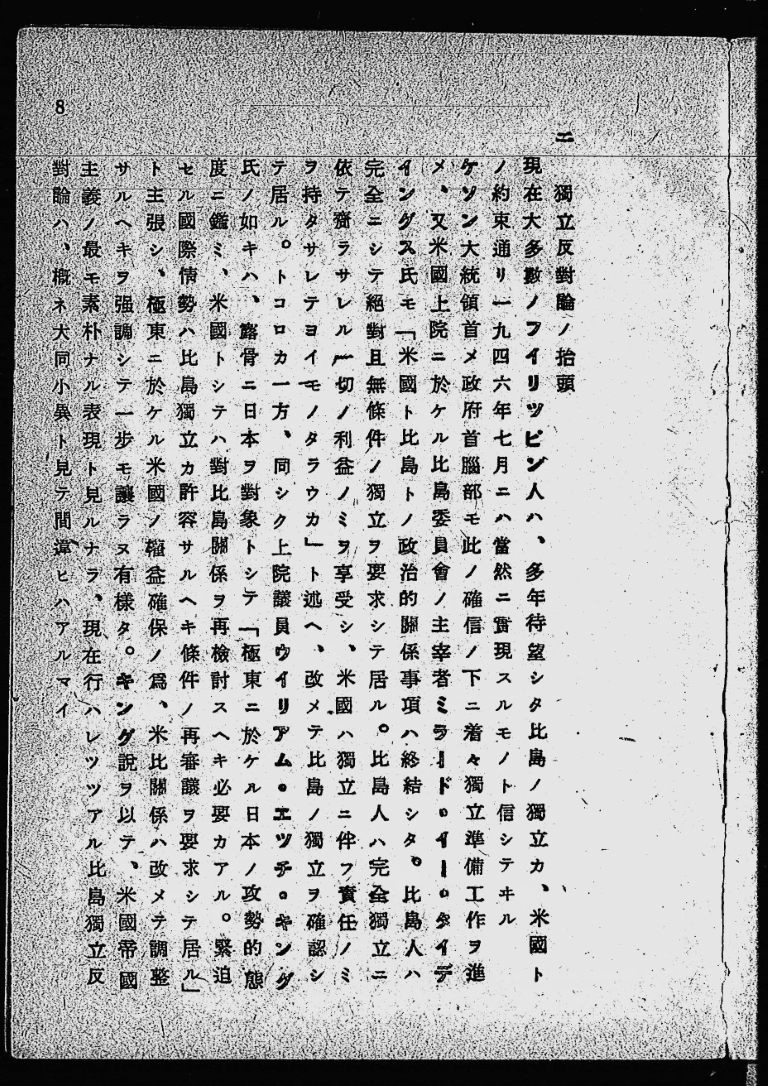 二　獨立反對論ノ抬頭
現在大多數ノフイリツピン人ハ、多年待望シタ比島ノ獨立カ、米國ト
ノ約束通リ一九四六年七月ニハ當然ニ實現スルモノト信シテヰル
ケソン大統領首メ政府首腦部モ此ノ確信ノ下ニ着々獨立準備工作ヲ進
メ、又米國上院ニ於ケル比島委員會ノ主宰者ミラード・イー・タイデ
イングス氏モ「米國ト比島トノ政治的關係事項ハ終結シタ。比島人ハ
完全ニシテ絕對且無條件ノ獨立ヲ要求シテ居ル。比島人ハ完全獨立ニ
依テ齎ラサレル一切ノ利益ノミヲ享受シ、米國ハ獨立ニ伴フ責任ノミ
ヲ持タサレテヨイモノタラウカ」ト述ヘ、改メテ比島ノ獨立ヲ確認シ
テ居ル。トコロカ一方、同シク上院議員ウイリアム・エツチ・キング
氏ノ如キハ、露骨ニ日本ヲ對象トシテ「極東ニ於ケル日本ノ攻勢的態
度ニ鑑ミ、米國トシテハ對比島關係ヲ再檢討スヘキ必要カアル。緊迫
セル國際情勢ハ比島獨立カ許容サルヘキ條件ノ再審議ヲ要求シテ居ル」
ト主張シ、極東ニ於ケル米國ノ權益確保ノ爲、米比關係ハ改メテ調整
サルヘキヲ强調シテ一步モ讓ラヌ有樣タ。キング說ヲ以テ、米國帝國
主義ノ最モ素朴ナル表現ト見ルナラ、現在行ハレツツアル比島獨立反
對論ハ、槪ネ大同小異ト見テ間違ヒハアルマイ
8